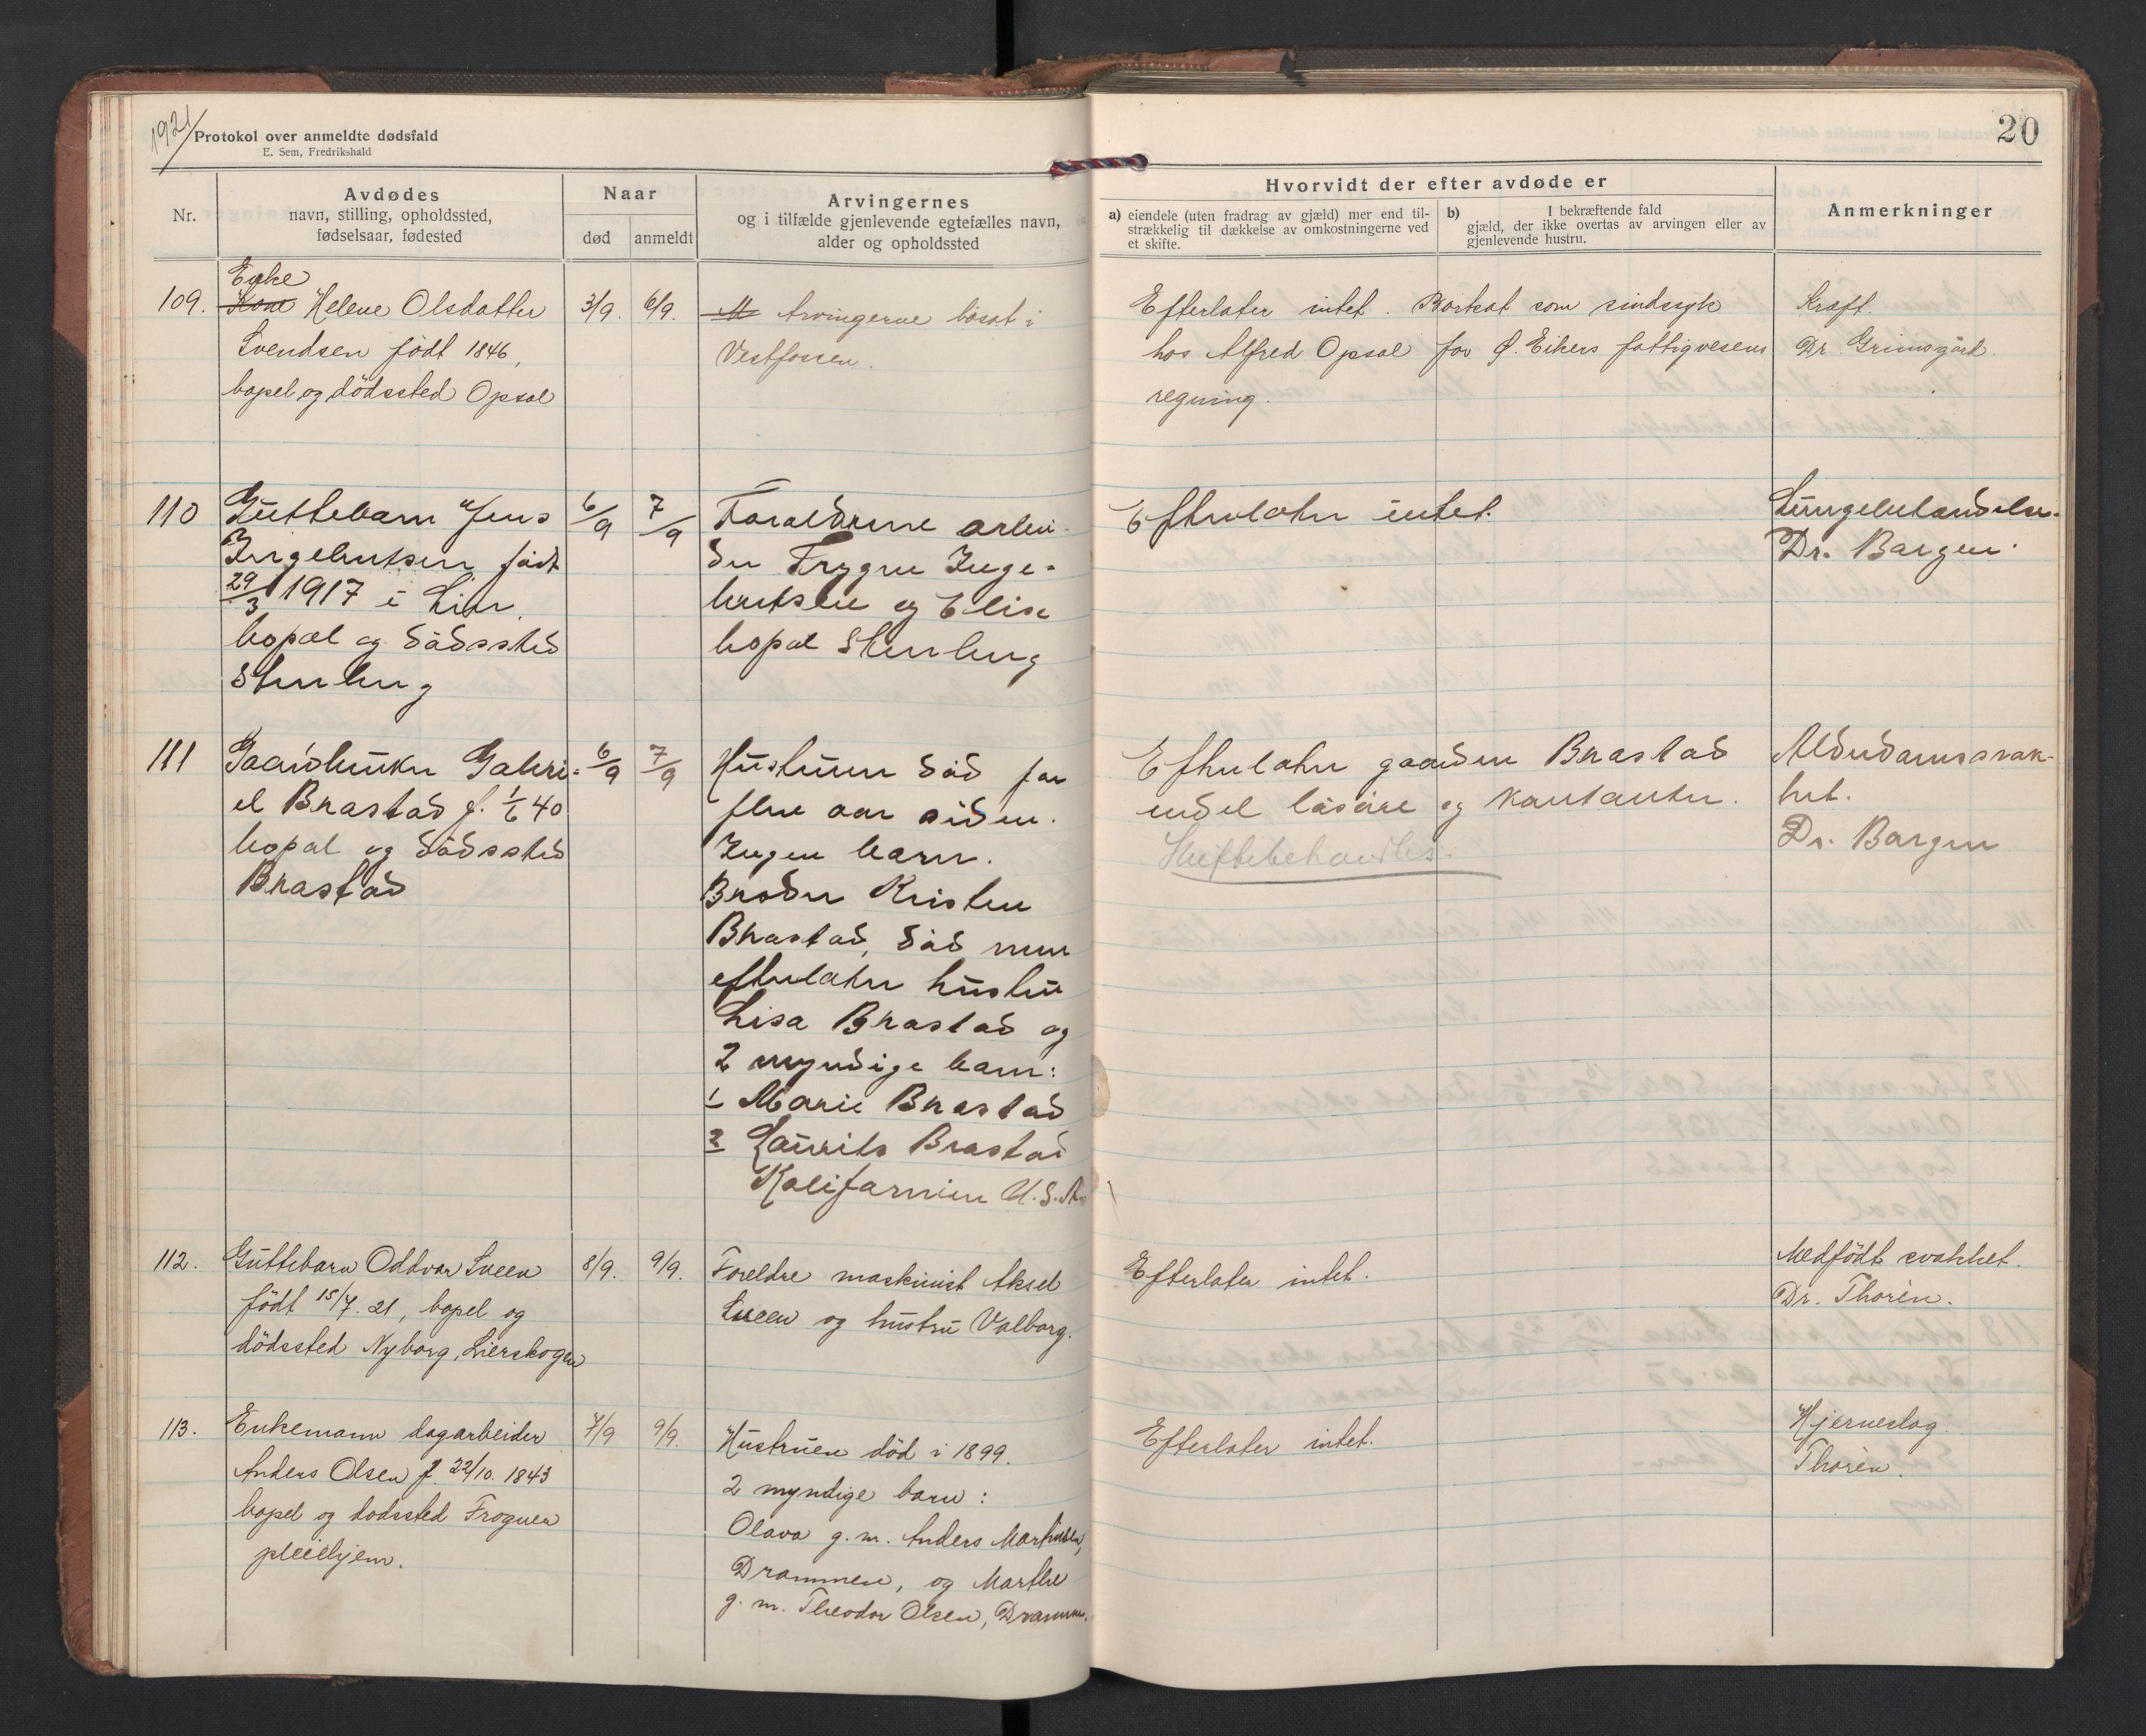 1921
Protokol over anmeldte dødsfald
E. Sem, Fredrikshald
20
Nr.
Avdødes
navn, stilling, opholdssted,
fødselsaar, fødested
Naar
død
anmeldt
Arvingernes
og i tilfælde gjenlevende egtefælles navn,
alder og opholdssted
Hvorvidt der efter avdøde er
a) eiendele (uten fradrag av gjæld) mer end til-
strækkelig til dækkelse av omkostningerne ved
et skifte.
b) I bekræftende fald
gjæld, der ikke overtas av arvingen eller av
gjenlevende hustru.
Anmerkninger
Enke
109. Kone Helene Olsdatter
Svendsen født 1846,
bopel og dödssted Opsal
3/9. 6/9.
Arvingerne bosat i
Vestfossen.
Efterlater intet. Bortsat som sindssyk
hos Alfred Opsal for Ø. Eikers fattigvesens
regning.
Kræft.
Dr. Grimsgård.
110 Guttebarn Jens
Ingebretsen født
29/3 1917 i Lier,
bopæl og dødssted
Stenberg
6/9 7/9
Forældrene arbei-
der Trygve Inge-
bretsen og Elise
bopæl Stenberg
Efterlater intet.
Lungebetændelse.
Dr. Borgen.
111 Gaardbruker Gabri-
el Brastad f. 1/6 40
bopæl og dødssted
Brastad
6/9 7/9
Hustruen död for
flere aar siden.
Ingen barn.
Broder Kristen
Brastad, död men
efterlater hustru
Lisa Brastad og
2 myndige barn:
1 Marie Brastad
2 Laurits Brastad
Kalifornien U.S.A.
Efterlater gaarden Brastad
endel løsøre og kontanter.
Skiftebehandles.
Alderdomssvak-
het.
Dr. Borgen
112. Guttebarn Oddvar Sveen
født 15/7. 21, bopel og
dödssted Nyborg, Lierskogen
8/9. 9/9.
Foreldre maskinist Aksel
Sveen og hustru Valborg.
Efterlater intet.
Medfödt svakhet.
Dr. Thorén.
113. Enkemann dagarbeider
Anders Olsen f. 22/10. 1843
bopel og dodssted Frogner
pleiehjem.
7/9 9/9.
Hustruen død i 1899.
2 myndige barn:
Olava g. m. Anders Martinsen,
Drammen, og Marthe
g. m. Theodor Olsen, Drammen.
Efterlater intet.
Hjerneslag.
Thorén.